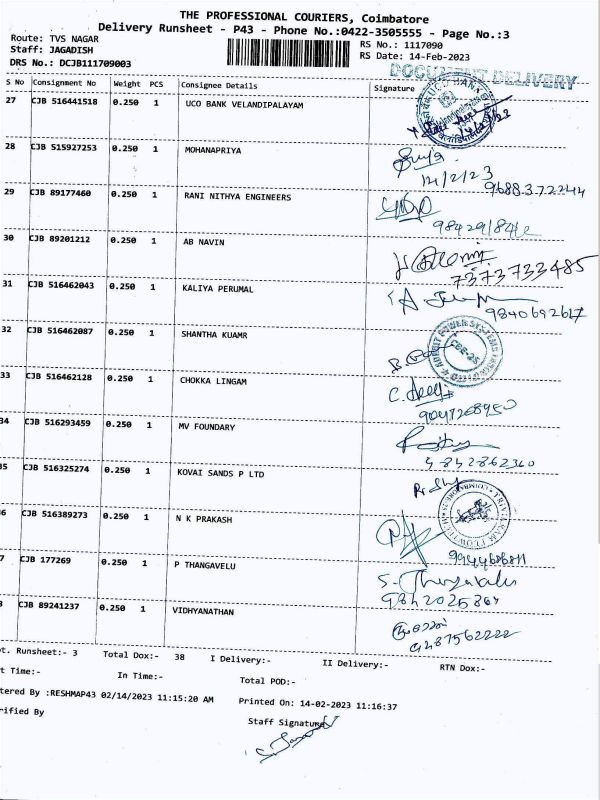 THE PROFESSIONAL COURIERS, Coimbatore
Delivery Runsheet - P43 - Phone No.:0422-3505555 - Page No.:3
Route: TVS NAGAR
Staff: JAGADISH
DRS No.: DCJB111709003
RS No.: 1117090
RS Date: 14-Feb-2023
DOCUMENT DELIVERY
S No Consignment No Weight PCS Consignee Details Signature
27 CJB 516441518 0.250 1 UCO BANK VELANDIPALAYAM
28 CJB 515927253 0.250 1 MOHANAPRIYA
14/2/23 9688372244
29 CJB 89177460 0.250 1 RANI NITHYA ENGINEERS
30 CJB 89201212 0.250 1 AB NAVIN
7373733485
31 CJB 516462043 0.250 1 KALIYA PERUMAL
9840692617
32 CJB 516462087 0.250 1 SHANTHA KUAMR
CBE-25
33 CJB 516462128 0.250 1 CHOKKA LINGAM
34 CJB 516293459 0.250 1 MV FOUNDARY
35 CJB 516325274 0.250 1 KOVAI SANDS P LTD
6 CJB 516389273 0.250 1 N K PRAKASH
7 CJB 177269 0.250 1 P THANGAVELU
8 CJB 89241237 0.250 1 VIDHYANATHAN
9487562222
ot. Runsheet:- 3 Total Dox:- 38 I Delivery:- II Delivery:- RTN Dox:-
t Time:- In Time:- Total POD:-
tered By :RESHMAP43 02/14/2023 11:15:20 AM Printed On: 14-02-2023 11:16:37
rified By Staff Signature